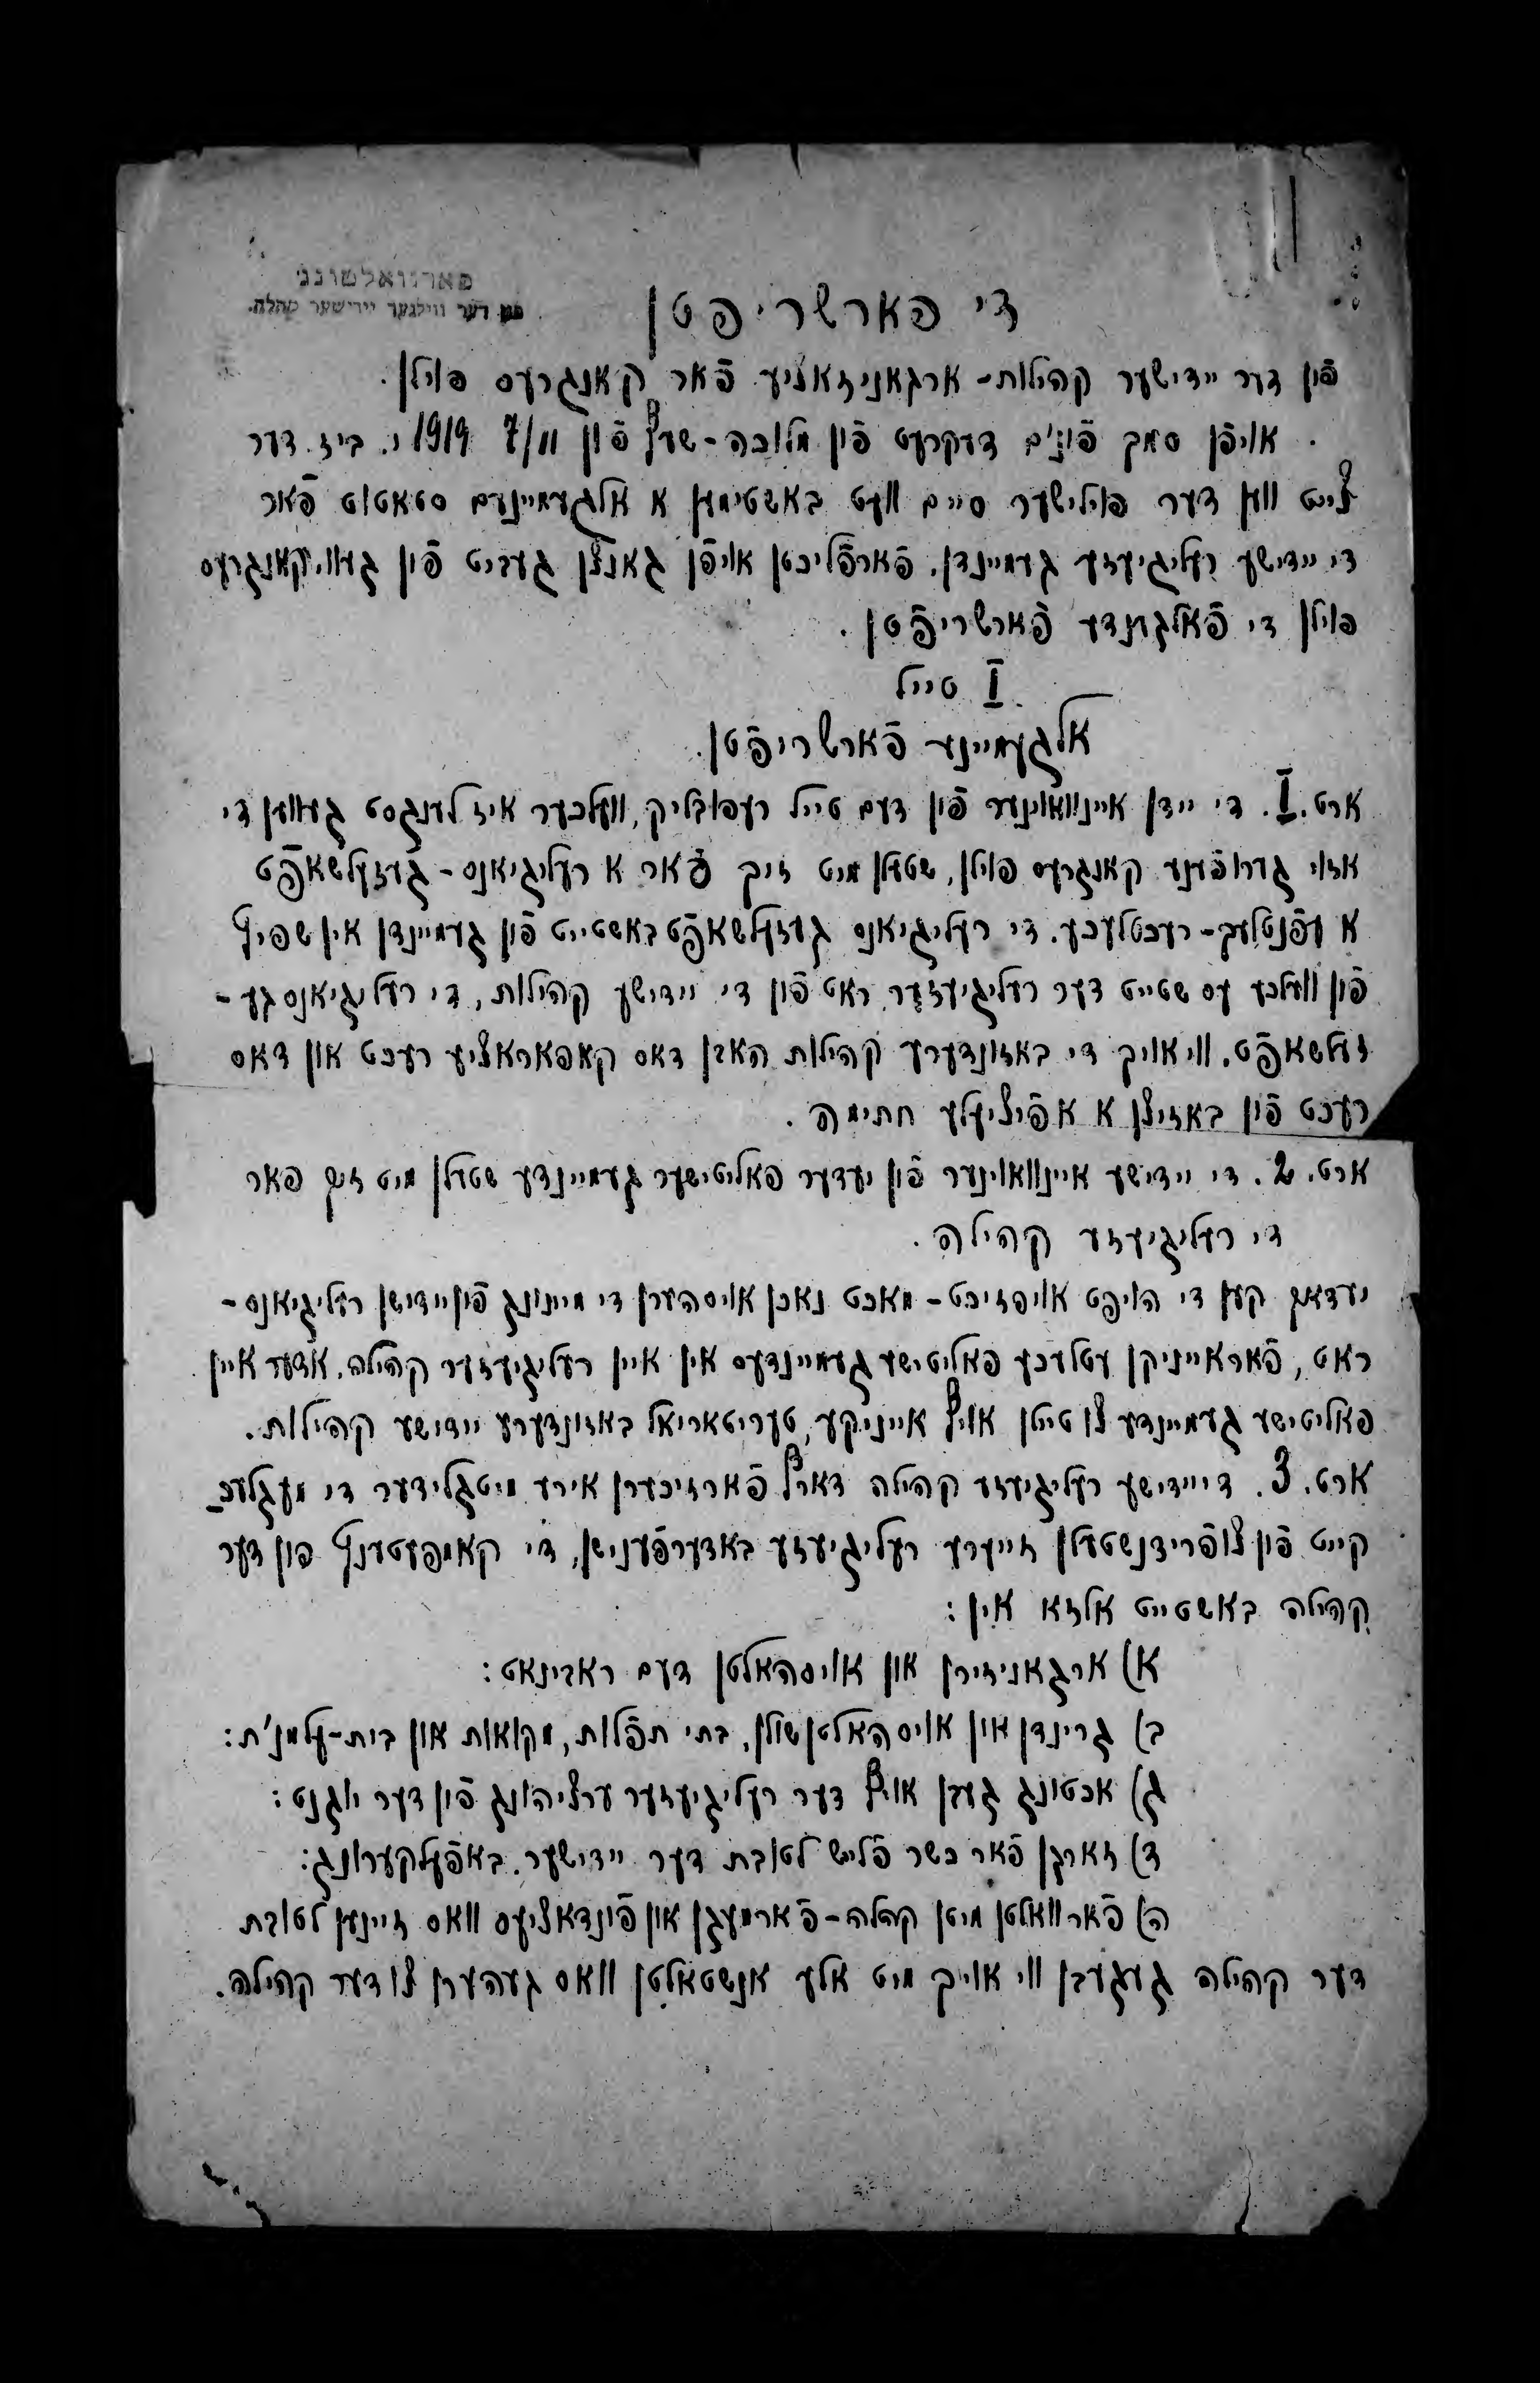 פארוואלטונג
פון דער ווילנער יידישער קהלה.
די פארשריפטן
פֿון דער יידישער קהילות-ארגאניזאציע פֿאר קאנגרעס פוילן.
אויפֿן סמך פֿונ'ם דעקרעט פֿון מלוכה-שעף פֿון 7/II 1919 י. ביז דער
צייט ווען דער פוילישער סיים וועט באשטימען א אלגעמיינעם סטאטוט פֿאר
די יידישע רעליגיעזע געמיינדן, פֿארפֿליכטן אויפֿן גאנצן געביט פֿון געוו. קאנגרעס
פוילן די פֿאלגענדע פֿארשריפֿטן.
I טייל
אלגעמיינע פֿארשריפֿטן.
ארט. I. די יידן איינוואוינער פֿון דעם טייל רעפובליק, וועלכער איז לענגסט געווען די
אזוי גערופֿענע קאנגרעס פוילן, שטעלן מיט זיך פֿאר א רעליגיאנס-געזעלשאפֿט
א עפֿנטלעך-רעכטלעכע. די רעליגיאנס געזעלשאפֿט באשטייט פֿון געמיינדן אין שפיץ
פֿון וועלכע עס שטייט דער רעליגיעזער ראט פֿון די יידישע קהילות, די רעליגיאנס גע-
זעלשאפֿט, ווי אויך די באזונדערע קהילות האבן דאס קאפאראציע רעכט און דאס
רעכט פֿון באזיצן א אפֿיציעלע חתימה.
ארט. 2. די יידישע איינוואוינער פֿון יעדער פאליטישער געמיינדע שטעלן מיט זיך פאר
די רעליגיעזע קהילה.
יעדאך קען די הויפט אויפזיכט-מאכט נאכן אויסהערן די מיינונג פֿון יידישן רעליגיאנס-
ראט, פֿאראייניקן עטלעכע פאליטישע געמיינדעס אין איין רעליגיעזער קהילה, אדער איין
פאליטישע געמיינדע צו טיילן אויף אייניקע, טעריטאריאל באזונדערע יידישע קהילות.
ארט. 3. די יידישע רעליגיעזע קהילה דארף פֿארזיכערן אירע מיטגלידער די מעגלעכ-
קייט פֿון צופֿרידנשטעלן זייערע רעליגיעזע באדערפֿענישן, די קאמפעטענץ פון דער
קהילה באשטייט אלזא אין:
א) ארגאניזירן און אויסהאלטן דעם ראבינאט:
ב) גרינדן און אויסהאלטן שולן, בתי תפֿלות, מקוואות און בית-עלמנ'ת:
ג) אכטונג געבן אויף דער רעליגיעזער ערציהונג פֿון דער יוגנט:
ד) זארגן פֿאר כשר פֿלייש לטובת דער יידישער באפֿעלקערונג:
ה) פֿארוואלטן מיטן קהלה-פֿארמעגן און פֿונדאציעס וואס זיינען לטובת
דער קהילה געגעבן ווי אויך מיט אלע אנשטאלטן וואס געהערן צו דער קהילה.